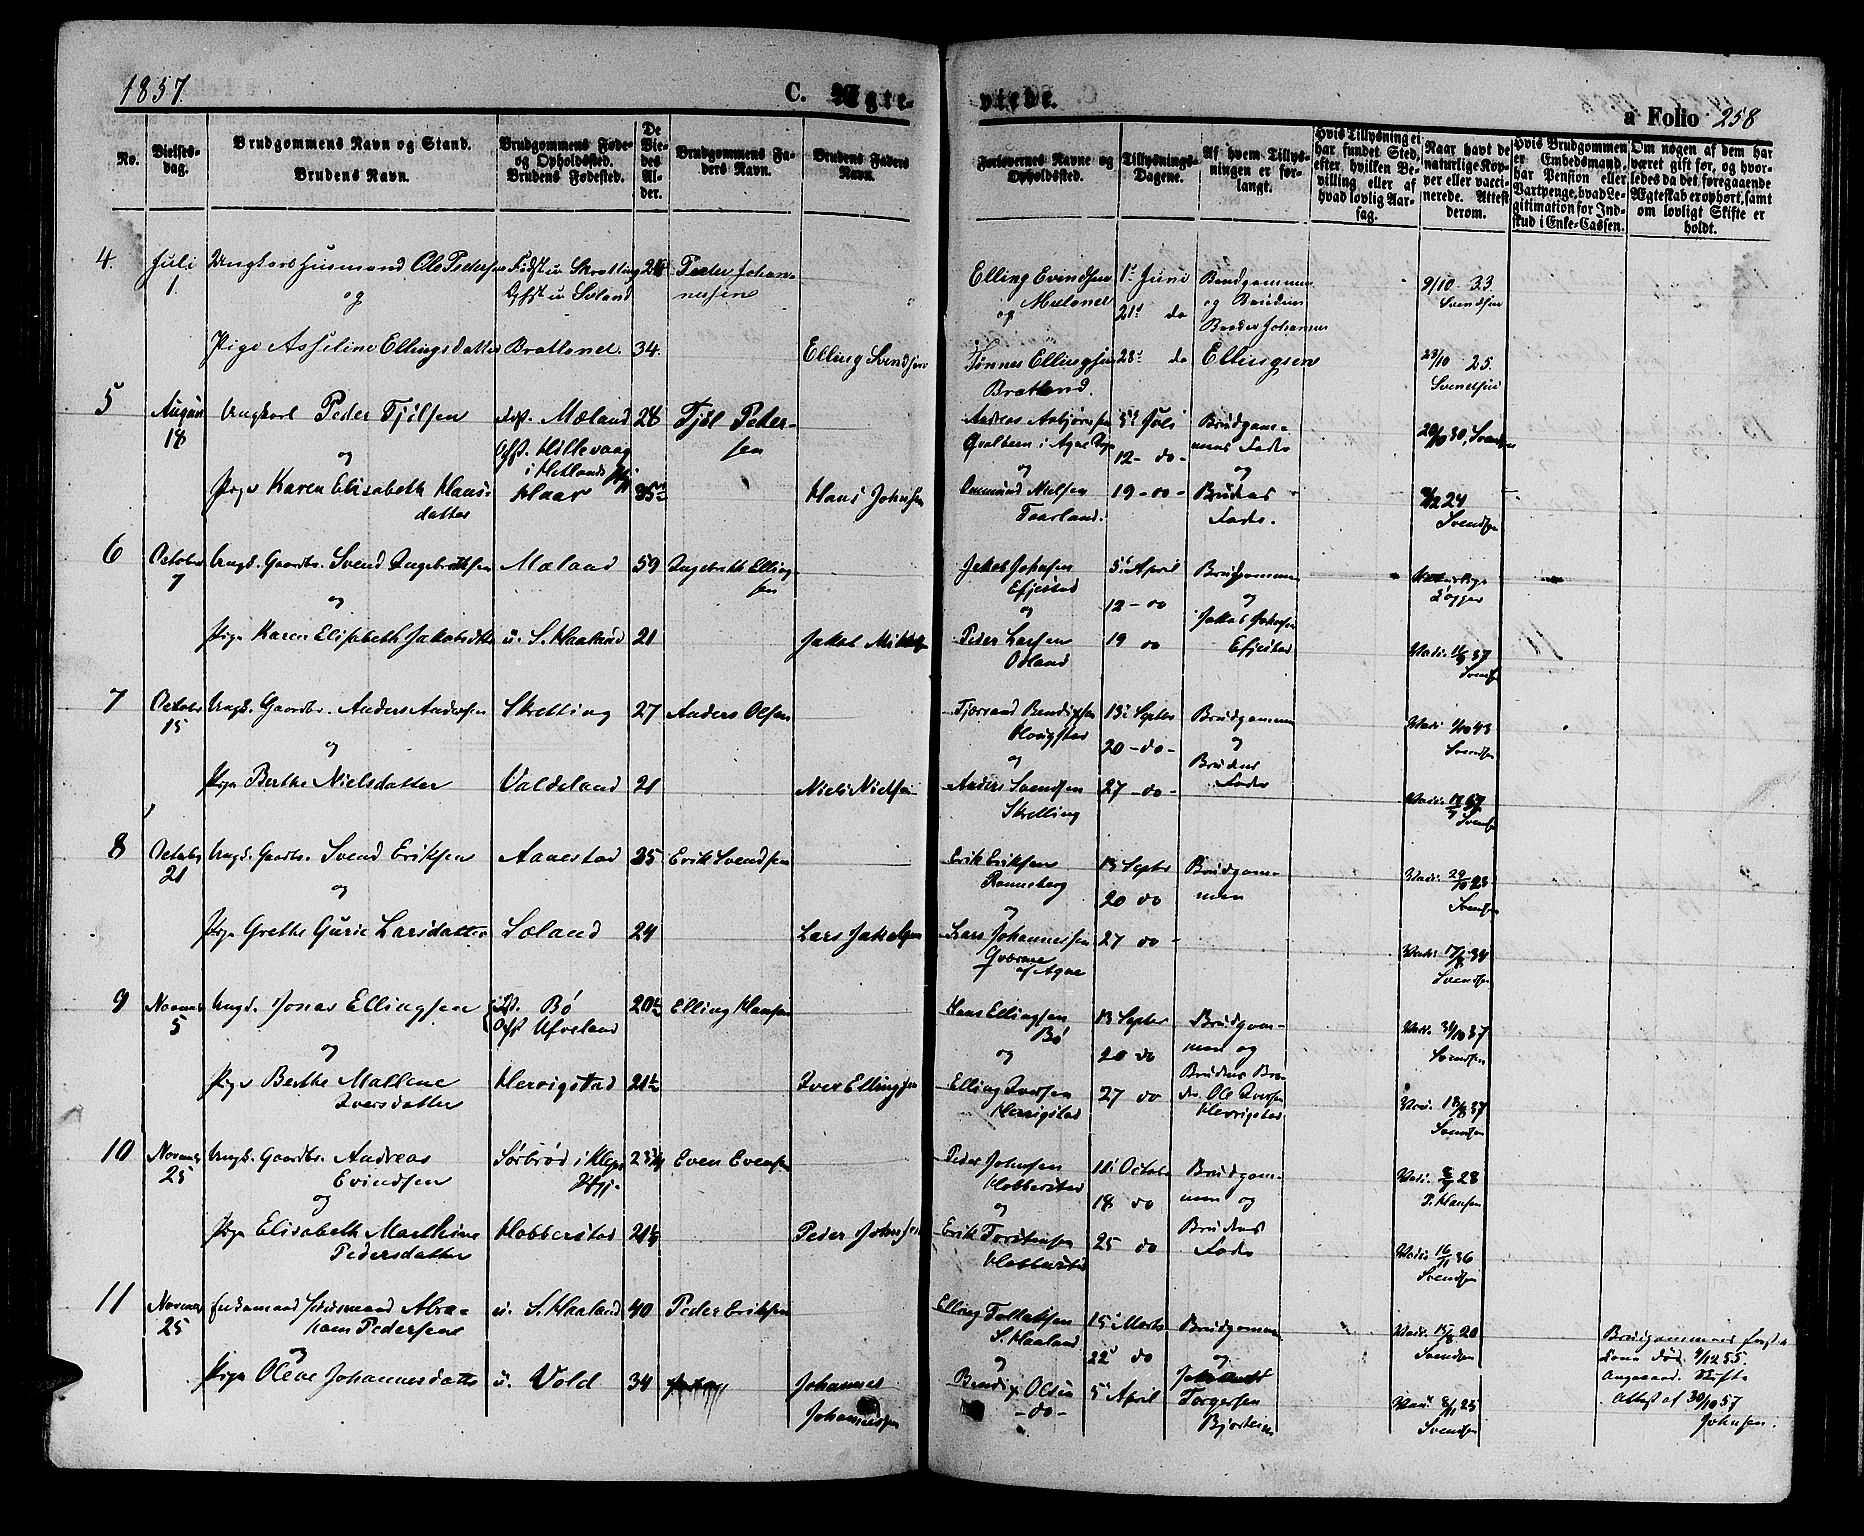 1857.
C. Ægte-
viede.
a Folio 258
No.
Vielses-
dag.
Brudgommens Navn og Stand.
Brudens Navn.
Brudgommens Føde-
og Opholdssted.
Brudens Fødested.
De
Vie-
des
Al-
der.
Brudgommens Fa-
ders Navn.
Brudens Faders
Navn.
Forlovernes Navne og
Opholdssted.
Tillysnings-
Dagene.
Af hvem Tillys-
ningen er for-
langt.
Hvis Tillysning ei
har fundet Sted,
efter hvilken Be-
villing eller af
hvad lovlig Aar-
sag.
Naar havt de
naturlige Kop-
per eller vacci-
nerede. Attest
derom.
Hvis Brudgommen
er Embedsmand,
har Pension eller
Vartpenge, hvad Le-
gitimation for Ind-
skud i Enke-Cassen.
Om nogen af dem har
været gift før, og hvor-
ledes da det foregaaende
Ægteskab er ophørt, samt
om lovligt Skifte er
holdt.
4. Juli
1.
Ungkarl Husmand Ole Pedersen
og
Fødst u. Skretting
Opst u Soland
Peder Johan-
nesen
Pige Asseline Ellingsdatter
Bratland.
34.
Elling Svendsen
Elling Evindsen
og Mæland
Tønnes Ellingsen
Bratland.
1ste Juni
21 do
28 do
Brudgommen
og Brudens
Broder Johannes
Ellingsen
9/10 33
Svendsen
23/10 25.
Svendsen
5 August
18
Ungkarl Peder Tjølsen
og
Pige Karen Elisabeth Hans-
datter
Fdst. Mæland
Opst. Hillevaag
i Hetlands Pgj
Haar
28
Tjøl Peder-
sen
Hans Johnsen
Andreas Asbjørnsen
Qvalbein i Ogne Sogn
og
Osmund Nielsen
Taarland.
5te Juli
12 - do -
19 - do -
Brudgom-
mens Fader
og
Brudens
Fader.
Svendsen
6 October
7
Ungk. Gaardbr. Svend Ingebretsen
og
Pige Karen Elisabeth Jakobsdtr
Mæland
u. S. Haaland
59
21
Ingebreth Elling-
sen
Jakob Mikkelsen
Jakob Johnsen
Efjestad
og
Peder Larsen
Odland
5te April
12 - do
19 do
Brudgommen
og
Jakob Johnsen
Efjestad
Naturlige
Kopper
Svendsen
7 October
15
Ungk. Gaardbr. Anders Andersen
og
Pige Berthe Nielsdatter
Skretting
Valdeland
27
21
Anders Olsen
Niels Nielsen
Tjørrand Bendixsen
Hovigstad
og
Anders Svendsen
Skretting
13 Septbr
20 - do -
27 - do -
Brudgommen
og
Brudens
Fader
Svendsen
Svendsen
8 October
21
Ungk. Gaardbr. Svend Eriksen
og
Pige Grethe Gurie Larsdatter
Aanestad
Soland
25
24
Erik Svendsen
Lars Jakobsen
Erik Eriksen
Ramsberg
og
Lars Johannessen
Qværme
af Ogne
13 Septbr
20 do
27 do -
Brudgom-
men
Vacc. 29/10 23
Svendsen
Vacc. 17/8 34
Svendsen
9 Novemb
5
Ungk. Jonas Ellingsen
og
Pige Berthe Mallene
Iversdatter
Fdst. Bø
Opst Ufveland
Hervigstad
20½
21½
Elling Hansen
Iver Ellingsen
Hans Ellingsen
Bø
og
Elling Iversen
Hervigstad
13 Septbr
20 do
27 do
Brudgom-
men og
Brudens Bro-
der Ole Iversen
Hervigstad
Vacc. 31/10 37
Svendsen
Vacc. 18/8 37
Svendsen
10 Novemb
25
Ungk. Gaardbr. Andreas
Evindsen
og
Pige Elisabeth Marthine
Pedersdatter
Sørbrød i Klep
Pgj.
Hobberstad
Even Evensen
Peder Johnsen
Peder Johnsen
Hobberstad
og
Erik Torstensen
Hobberstad
11 Octobr
18 do
25 do
Brudgom-
men og
Brudens
Fader
P. Hansen
Vacc. 16/11 36
Svendsen
11 Novemb
25
Enkemand Huusmand Abra-
ham Pedersen
og
Pige Olene Johannesdatter
u. S. Haaland
u. Vold
40
34
Peder Eriksen
Johannes
Johannessen
Elling Tollaksen
S. Haaland
og
Bendix Olsen
- do -
15 Marts
22 do
5 April
Brudgommen
og
Johannes
Torgersen
Bjorheim
Vacc. 15/8 20
Svendsen
Vacc. 8/11 25
Svendsen
Brudgommens første
Kone død 9/12 55.
Angaaend. Skifte
Attest af 30/10 57
Johnsen.